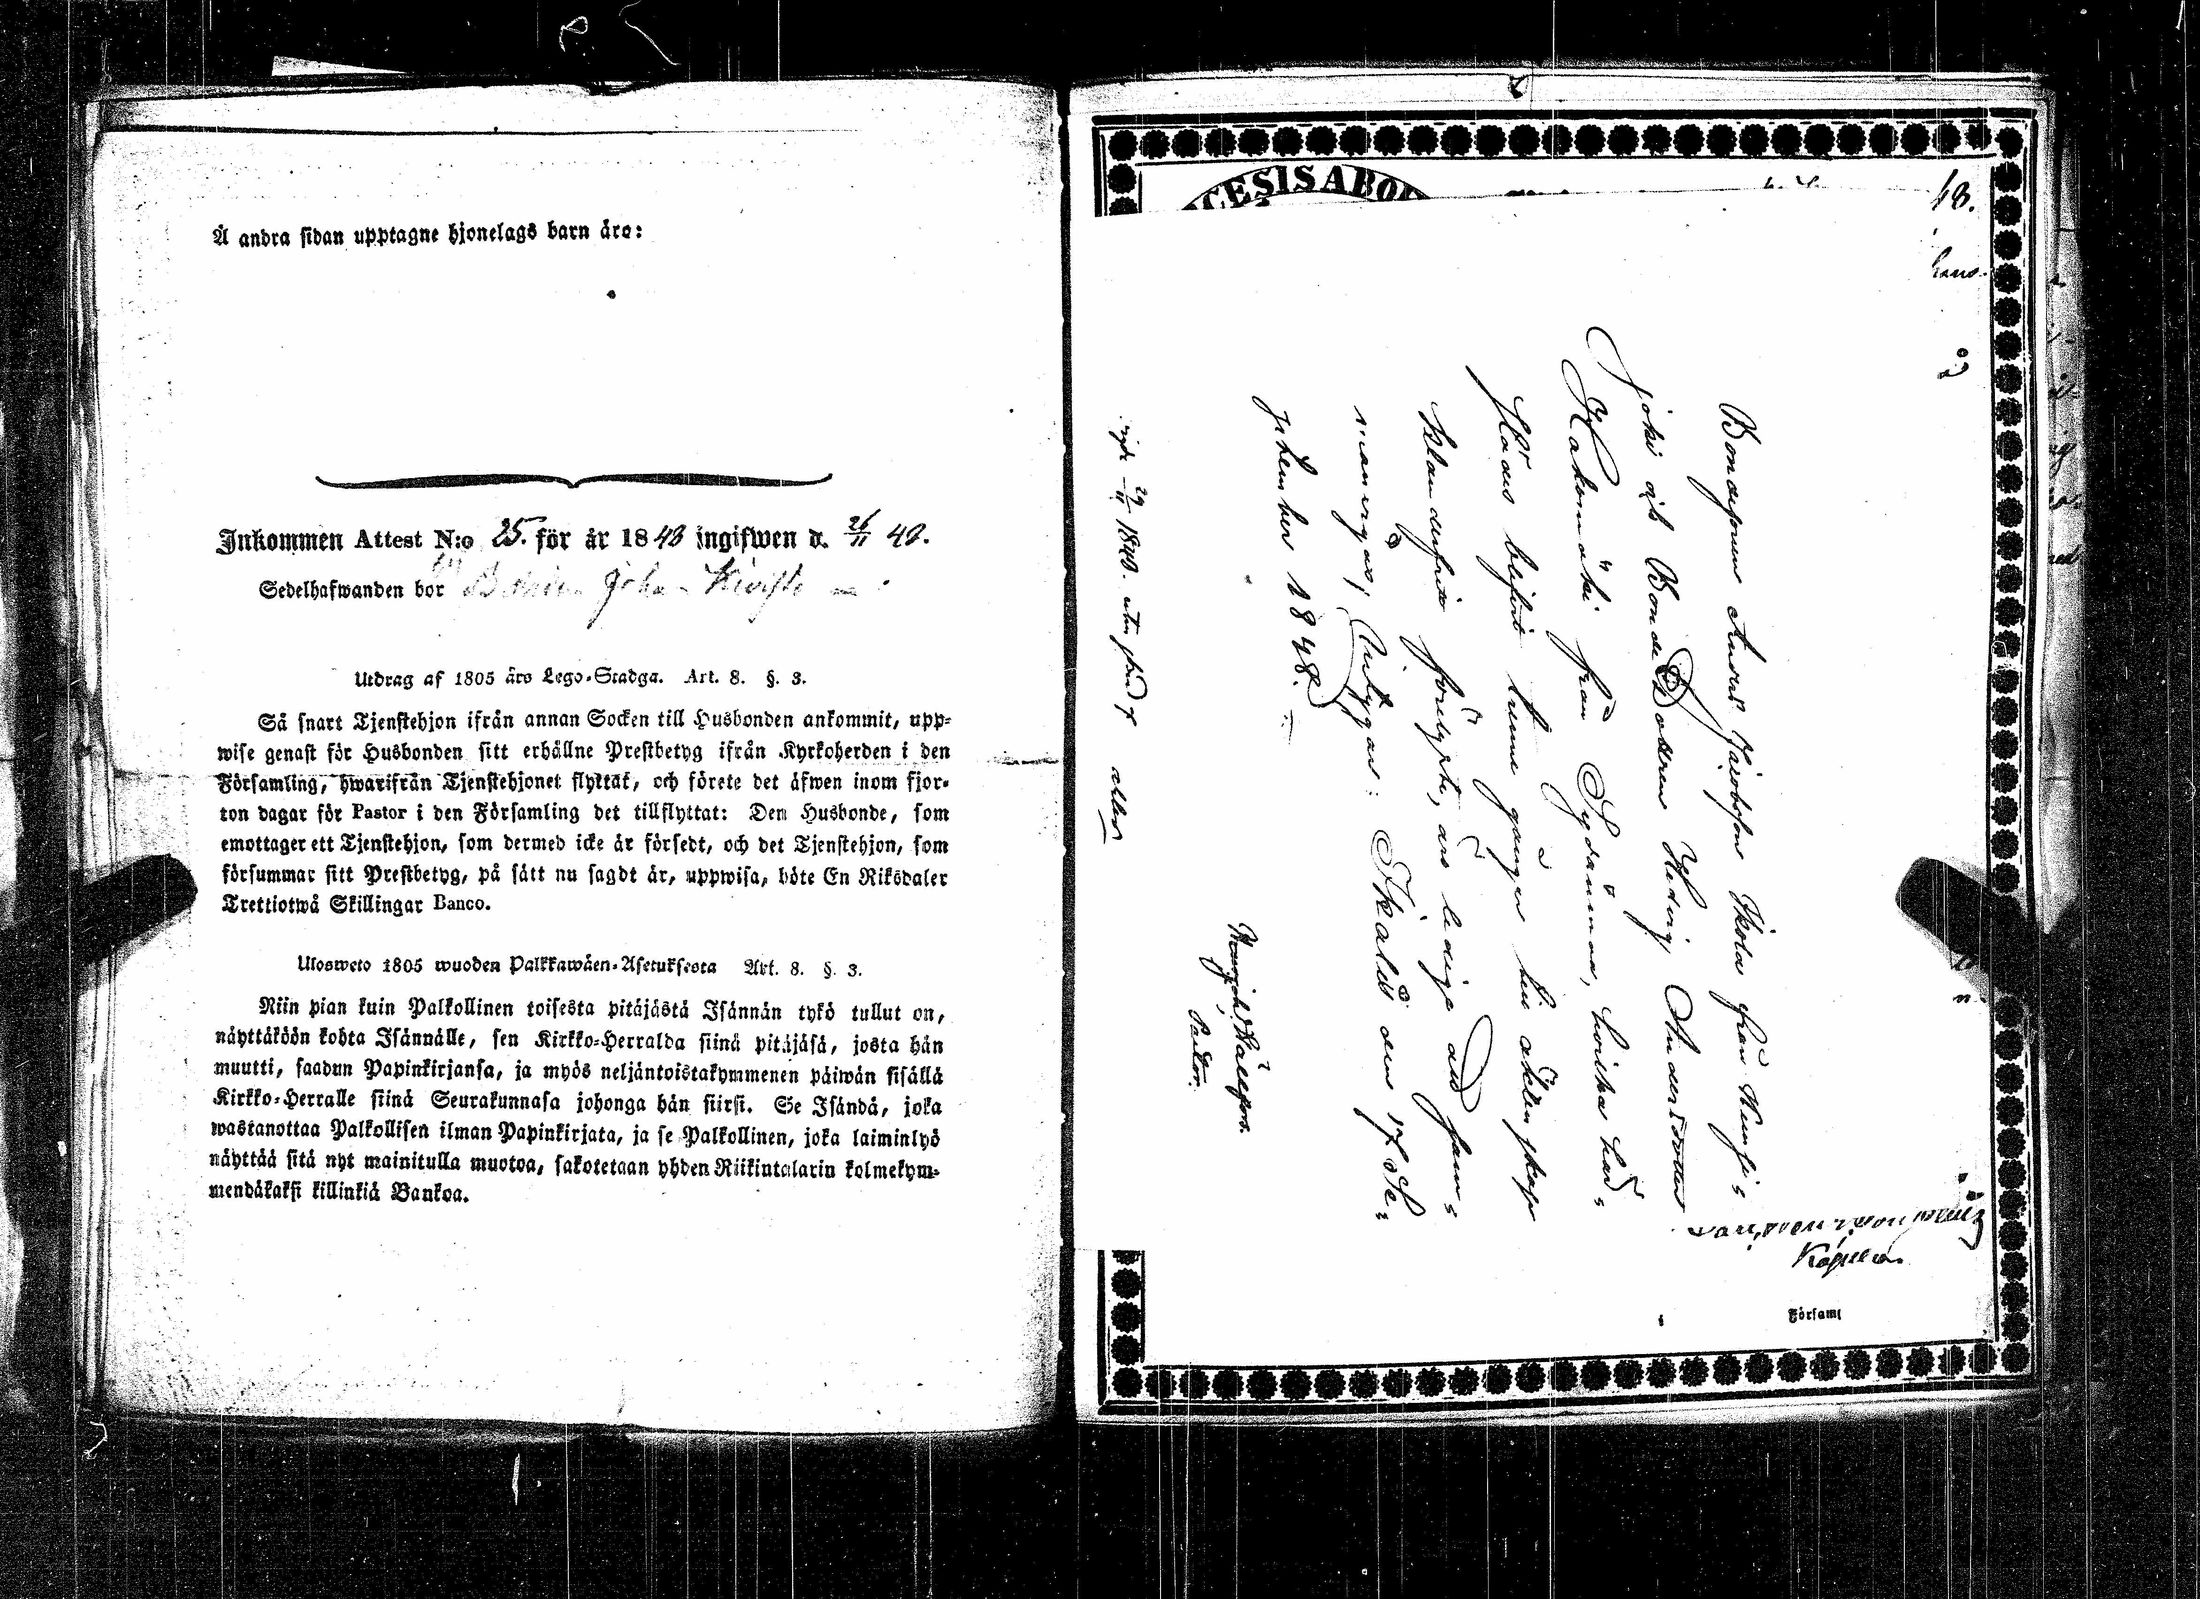 Å andra sidan upptagne hjonelags barn äro:
Inkommen Attest N:o 25. för år 1848 ingifwen d. 26/11 48.
Sedelhafwanden bor
Utdrag af 1805 års Lego-Stadga. Art. 8. §. 3.
Så snart Tjenstehjon ifrån annan Socken till Husbonden ankommit, upp-
wise genast för Husbonden sitt erhållne Prestbetyg ifrån Kyrkoherden i den
Församling, hwarifrån Tjenstehjonet flyttat, och förete det äfwen inom fjor-
ton dagar för Pastor i den Församling det tillflyttat: Den Husbonde, som
emottager ett Tjenstehjon, som dermed icke är försedt, och det Tjenstehjon, som
försummar sitt Prestbetyg, på sätt nu sagdt är, uppwisa, böte En Riksdaler
Trettiotwå Skillingar Banco.
Ulosweto 1805 wuoden Palkkawäen-Asetuksesta Art. 8. §. 3.
Niin pian kuin Palkollinen toisesta pitäjästä Isännän tykö tullut on,
näyttäköön kohta Isännälle, sen Kirkko-Herralda siinä pitäjäsä, josta hän
muutti, saadun Papinkirjansa, ja myös neljäntoistakymmenen päiwän sisällä
Kirkko-Herralle siinä Seurakunnasa johonga hän siirsi. Se Isändä, joka
wastanottaa Palkollisen ilman Papinkirjata, ja se Palkollinen, joka laiminlyö
näyttää sitä nyt mainitulla muotoa, sakotetaan yhden Riikintalarin kolmekym-
mendäkaksi killinkiä Bankoa.
CESIS ABOE
18.
hans
Bondesonen Anders Jacobsson Skola från Kensi-
joki och Bonde Dottren Hedvig Andersdotter
Hakomäki från Sydänmaa, hvilka här-
städes blifvit trenne gånger till äktenskap
klanderfritt förelyste, äro lediga att sam-
manvigas, intygar: Ikalis den 17 Sep-
tember 1848.
Pastor.
29/11 1848. utan
Kapellan
Församl